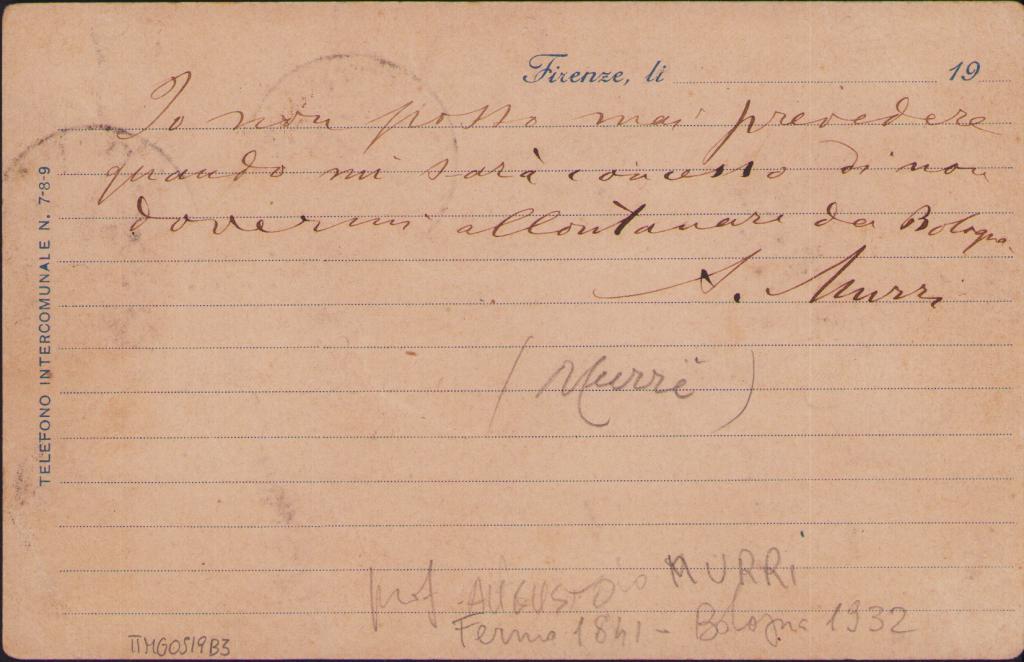 Firenze, li 19
Io non posso mai prevedere
quando mi sarà concesso di non
dovermi allontanare da Bologna
A. Murri
(Murri)
prof AUGUSTO MURRI
Fermo 1841 - Bologna 1932
TELEFONO INTERCOMUNALE N. 7-8-9
ITMGOS19B3